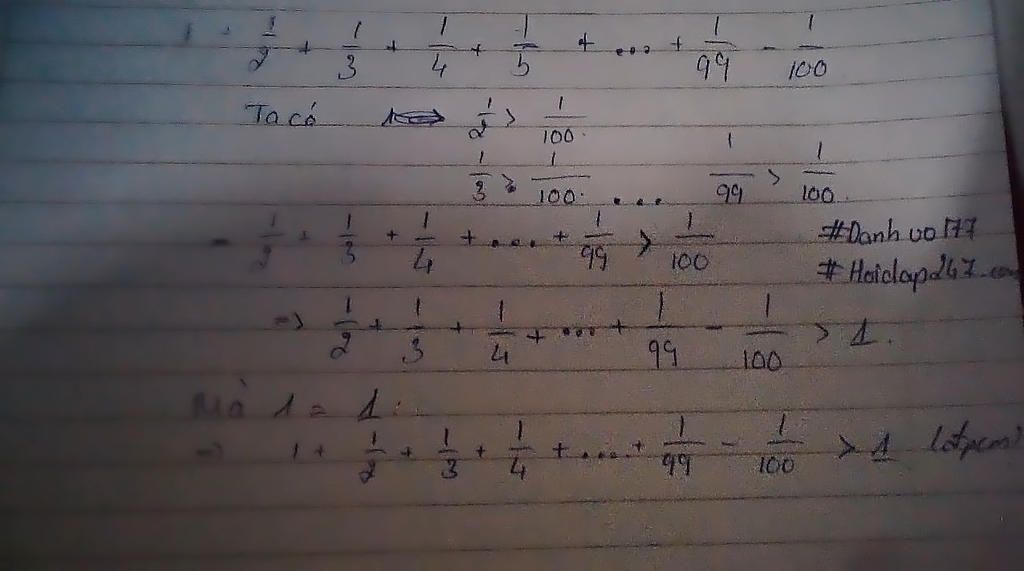 1 + 1/2 + 1/3 + 1/4 + 1/5 + ... + 1/99 - 1/100
Ta có 1/2 > 1/100
1/3 > 1/100 ... 1/99 > 1/100
1/2 + 1/3 + 1/4 + ... + 1/99 > 1/100 #Danhvo177
#Hoidap247.com
=> 1/2 + 1/3 + 1/4 + ... + 1/99 - 1/100 > 1.
Mà 1 = 1:
=> 1 + 1/2 + 1/3 + 1/4 + ... + 1/99 - 1/100 > 1 (đpcm)